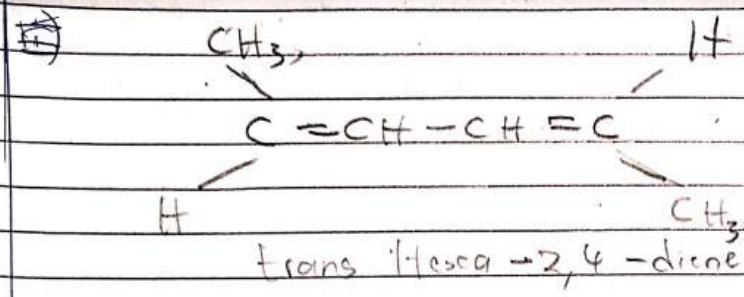 ii)
CH₃, H
C = CH - CH = C
H CH₃
trans Hexa -2,4 -diene